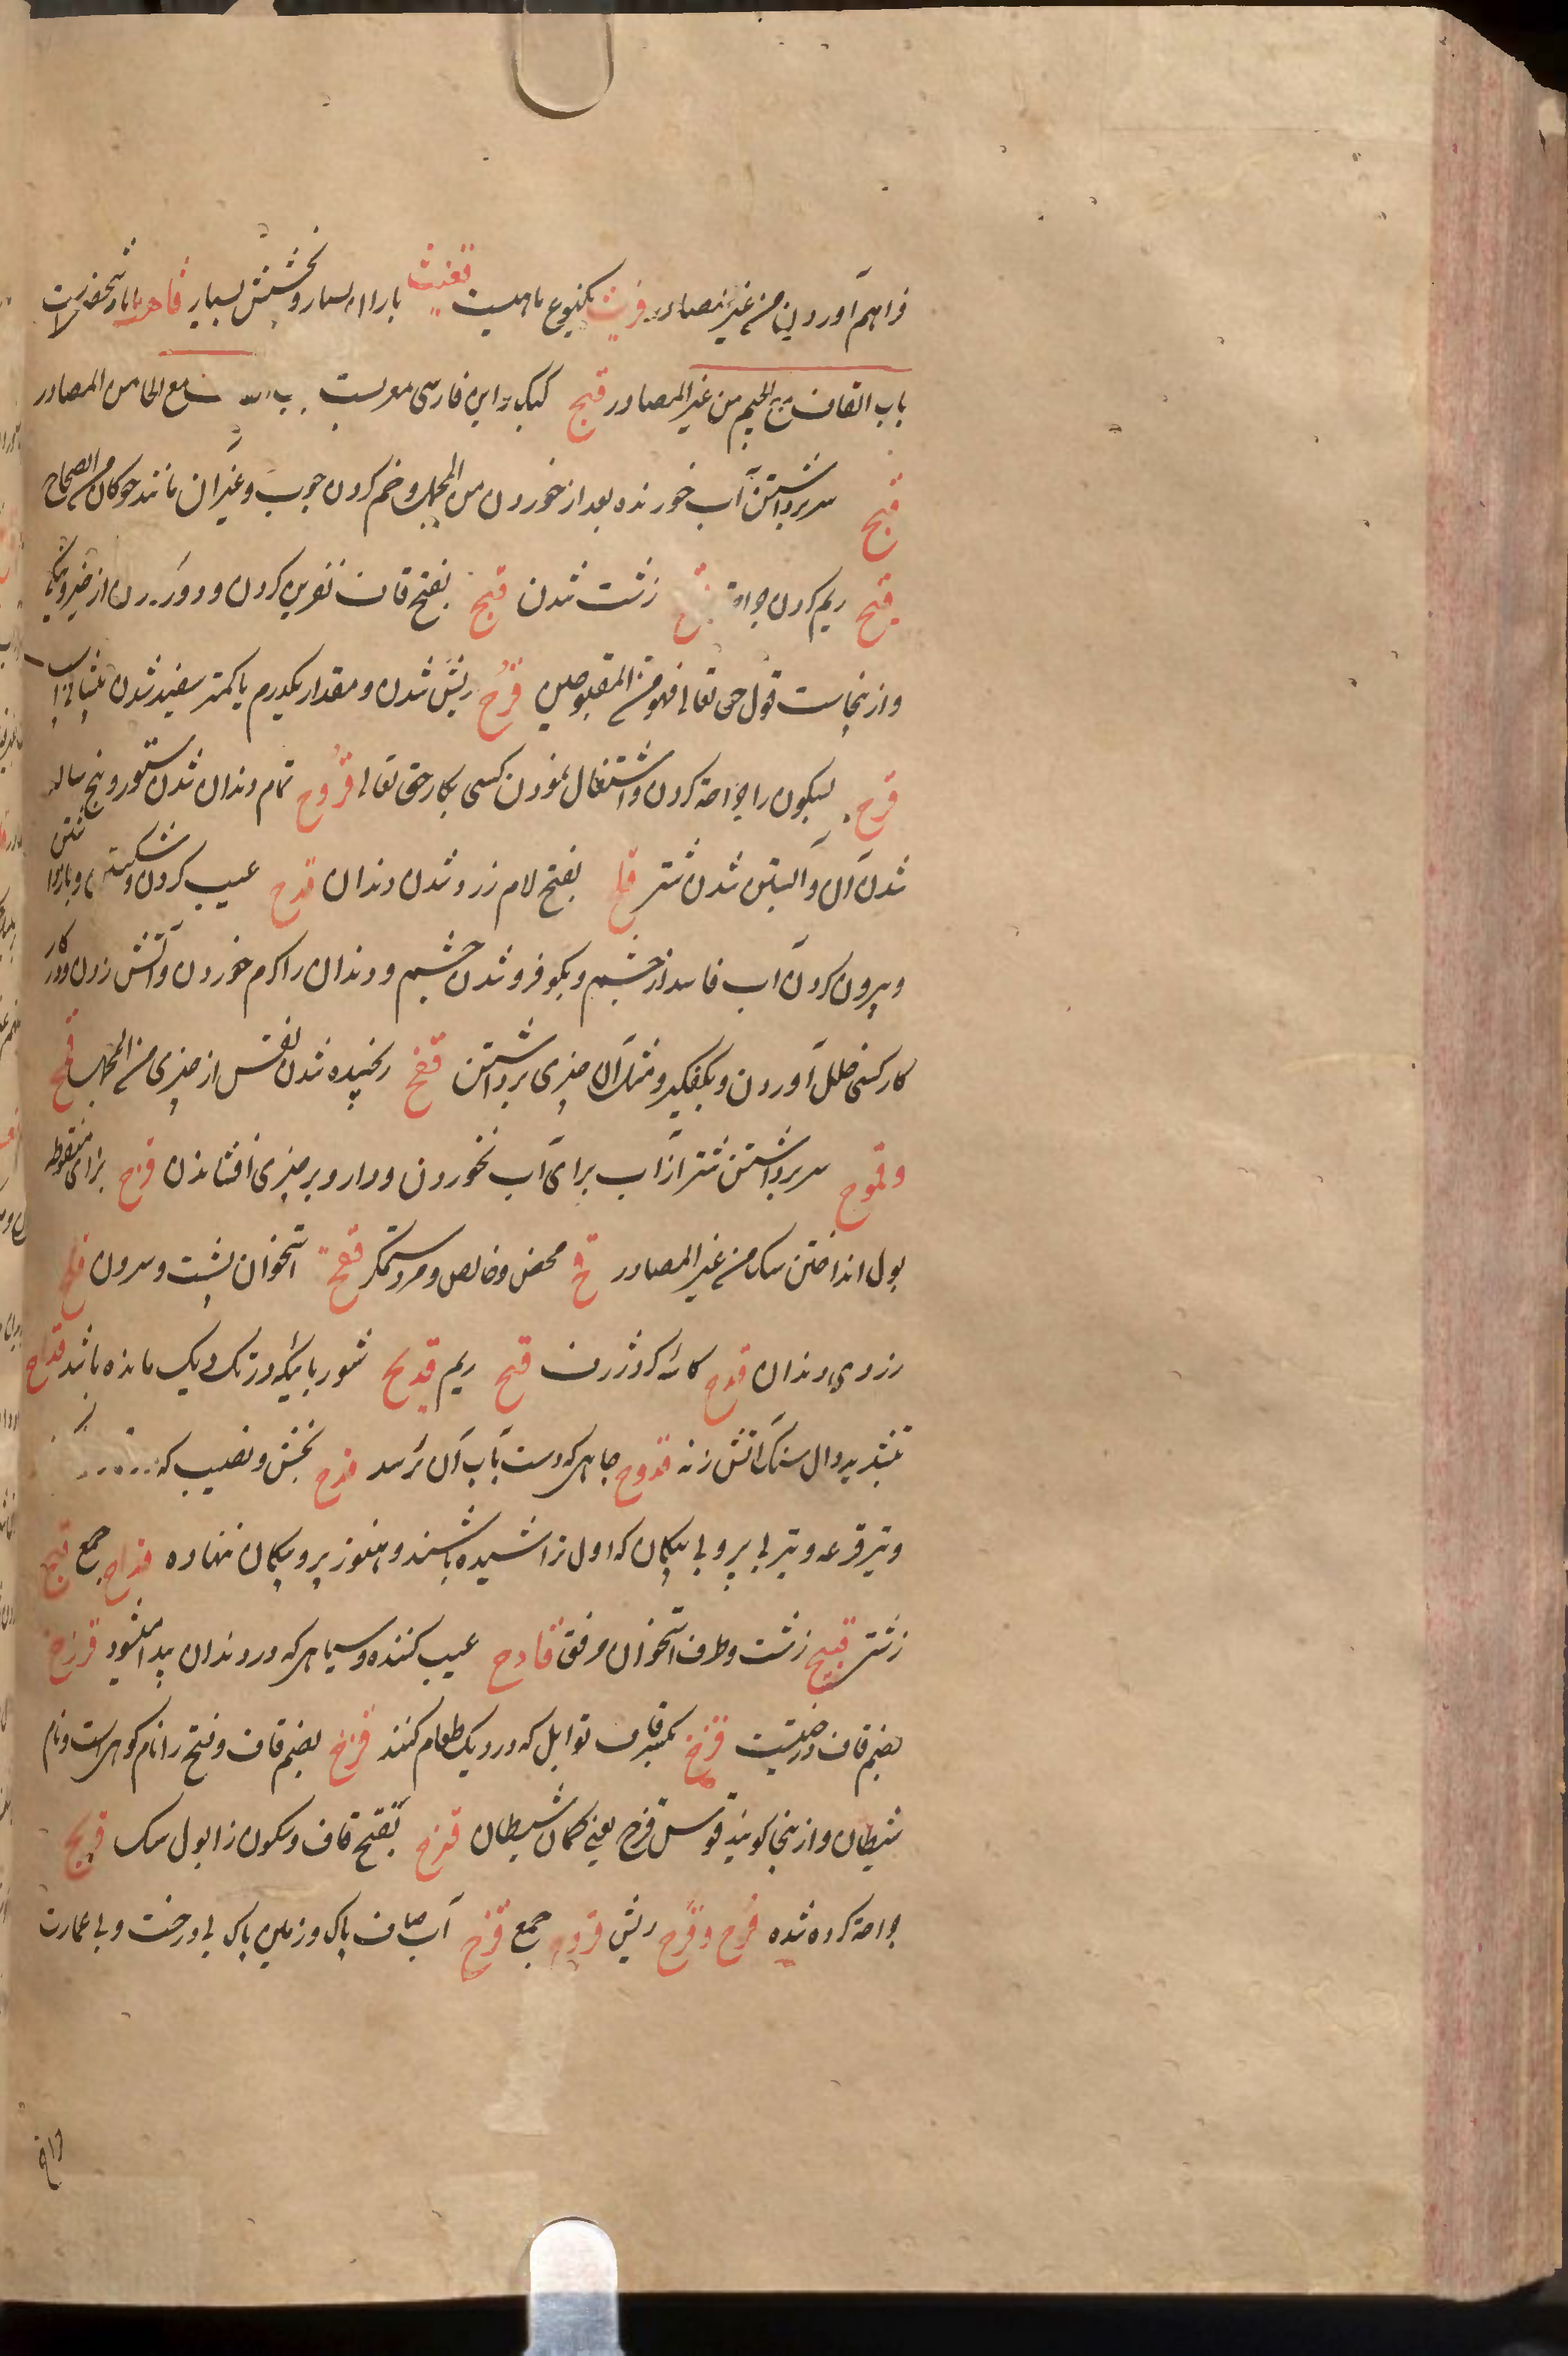 فراهم آوردن من غیر المصادر قریث یکنوع ماهیست قغیث باران بسیار و بخشش بسیار
باب القاف مع الجیم من غیر المصادر قبج کبک و این فارسی معربست مع الحا من المصادر
قمح سر برداشتن آب خورنده بعد از خوردن من المجمل و خم کردن چوب و غیر آن مانند من الصحاح
قیح ریم کردن جراحة قبح زشت شدن قبح بفتح قاف نفرین کردن و دور کردن از خیر و نیکی
و ازینجاست قول حق تعالی فهو من المقبوحین قرح ریش شدن و مقدار یکدرم یا کمتر سفید شدن پیشانی اسب
قرح بسکون را جراحة کردن و اشتغال نمودن کسی بکار حق تعالی قروح تمام دندان شدن ستور و پنج ساله
شدن آن و آبستن شدن شتر قلح بفتح لام زرد شدن دندان قدح عیب کردن و شکستن
و بیرون کردن آب فاسد از چشم و بکو فرو شدن چشم و دندان را کرم خوردن و آتش زدن و در کار
کار کسی خلل آوردن و بکفگیر و مثل آن چیزی برداشتن قفح رنجیده شدن نفس از چیزی من المجمل قمح
و قموح سر برداشتن شتر از آب برای آب نخوردن و دارو بر چیزی افشاندن قزح بزای منقوطه
بول انداختن سک من غیر المصادر قح محض و خالص و مرد ستمکر قفح استخوان پشت و سرون قلح
زردی دندان قدح کاسه که ژرف قیح ریم قدیح شوربائیکه در تک دیک مانده باشد قداح
بتشدید دال سنک آتش زنه قدوح چاهی که دست بآب آن برسد قدح بخش و نصیب که
و تیر قرعه و تیر بی پر و بی پیکان که اول تراشیده باشند و هنوز پر و پیکان ننهاده قداح جمع قبح
زشتی قبیح زشت و طرف استخوان مرفق قادح عیب کننده و سیاهی که در دندان پیدا میشود قزح
بضم قاف درختیست قزح بکسر قاف توابل که در دیک طعام کنند قزح بضم قاف و فتح زا نام کوهی است و نام
شیطان و ازینجا کویند قوس قزح یعنی کمان شیطان قزح بفتح قاف و سکون زا بول سک قریح
جراحة کرده شده قرح و قرح ریش قروح جمع قرح آب صاف پاک و زمین پاک بی درخت و بی عمارت